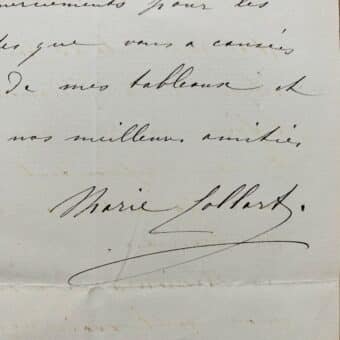 pour les
que vous a causées
de mes tableaux et
nos meilleures amitiés
Marie Collart.